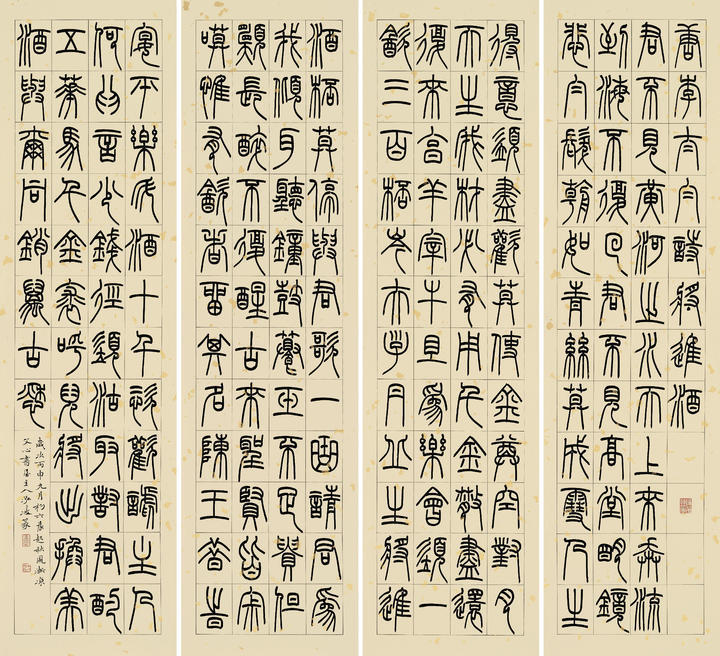 唐李太白詩將進酒
君不見黃河之水天上來奔流
到海不復回君不見高堂明鏡
悲白髮朝如青絲莫成雪人生
得意須盡歡莫使金尊空對月
天生我材必有用千金散盡還
復來烹羊宰牛且為樂會須一
飲三百桮岑夫子丹丘生將進
酒桮莫停與君歌一曲請君為
我傾耳聽鐘鼓饌玉不足貴但
願長醉不復醒古來聖賢皆寂
嗼惟有飲者留其名陳王昔時
宴平樂斗酒十千恣歡謔主人
何為言少錢徑須沽取對君酌
五花馬千金裘呼兒將出換美
酒與爾同銷萬古愁
歲次丙申九月初六